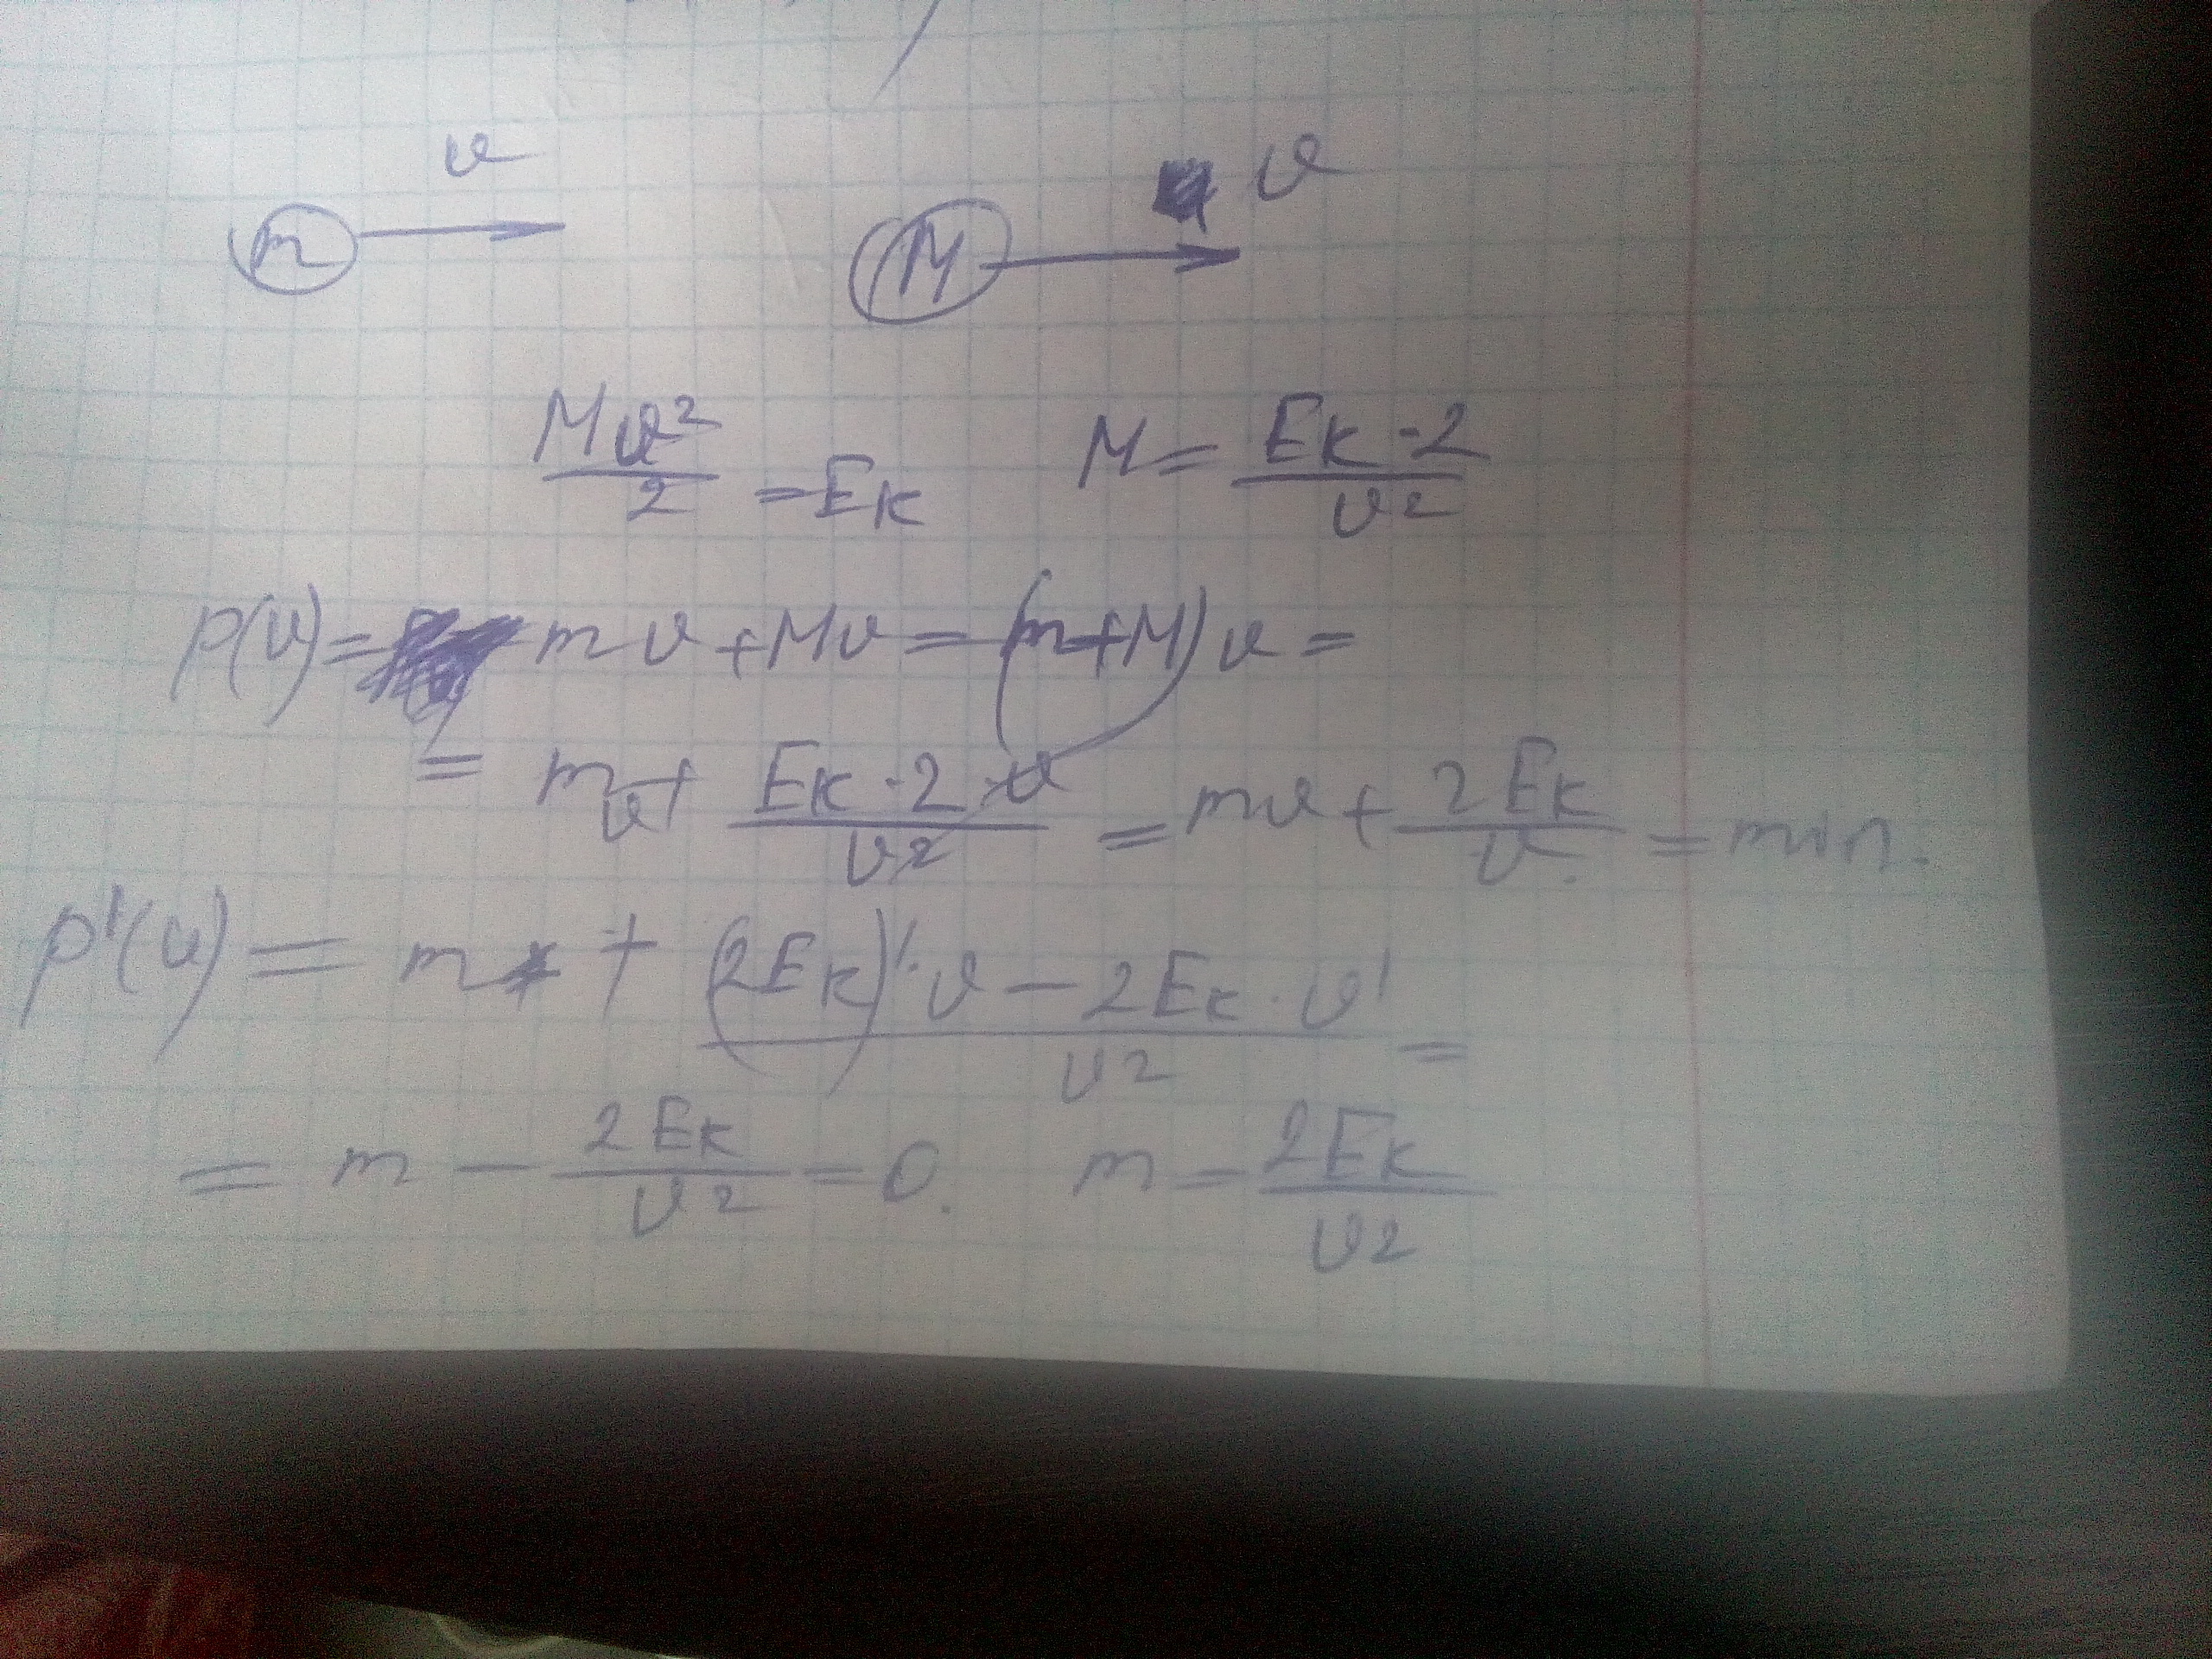 v v
m M
Mv²/2 = Eк M = Eк·2/v²
p(v) = mv + Mv = (m+M)v =
= mv + Eк·2·v/v² = mv + 2Eк/v = min.
p'(v) = m + (2Eк)'·v − 2Eк·v'/v² =
= m − 2Eк/v² = 0. m = 2Eк/v²